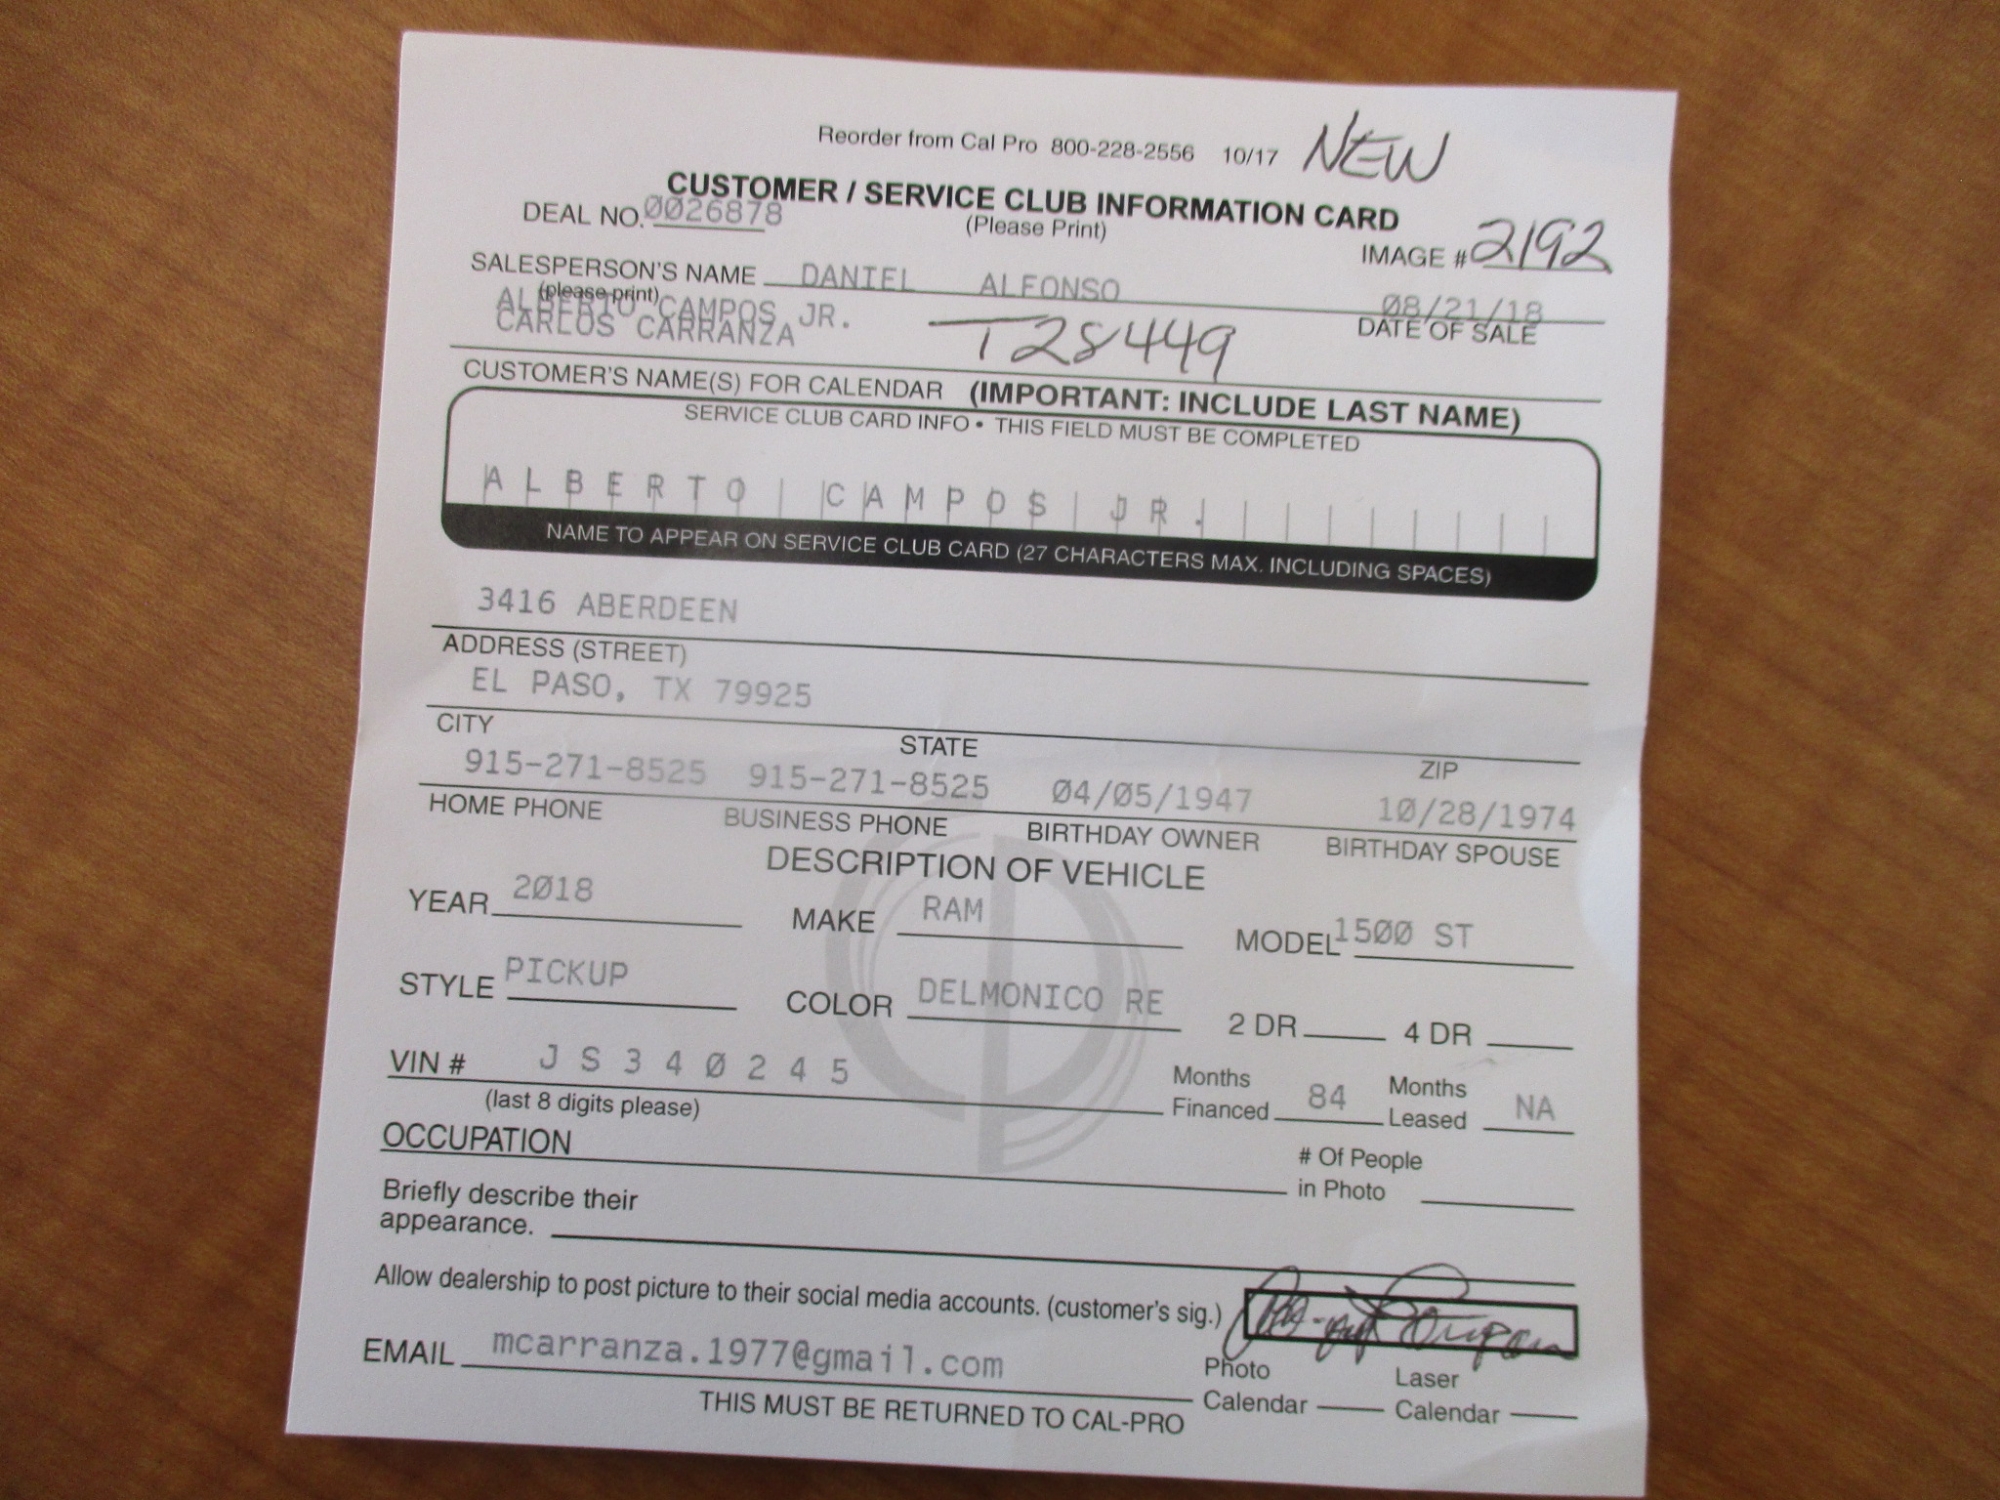 Reorder from Cal Pro 800-228-2556 10/17 NEW
CUSTOMER / SERVICE CLUB INFORMATION CARD
DEAL NO. 0026878 (Please Print)
IMAGE # 2192
SALESPERSON'S NAME DANIEL ALFONSO
(please print)
08/21/18
ALBERTO CAMPOS JR.
DATE OF SALE
CARLOS CARRANZA T28449
CUSTOMER'S NAME(S) FOR CALENDAR (IMPORTANT: INCLUDE LAST NAME)
SERVICE CLUB CARD INFO • THIS FIELD MUST BE COMPLETED
ALBERTO CAMPOS JR.
NAME TO APPEAR ON SERVICE CLUB CARD (27 CHARACTERS MAX. INCLUDING SPACES)
3416 ABERDEEN
ADDRESS (STREET)
EL PASO, TX 79925
CITY STATE ZIP
915-271-8525 915-271-8525 04/05/1947 10/28/1974
HOME PHONE BUSINESS PHONE BIRTHDAY OWNER BIRTHDAY SPOUSE
DESCRIPTION OF VEHICLE
YEAR 2018 MAKE RAM MODEL 1500 ST
STYLE PICKUP COLOR DELMONICO RE 2 DR 4 DR
VIN # J S 3 4 0 2 4 5
(last 8 digits please)
Months Financed 84 Months Leased NA
OCCUPATION
# Of People in Photo
Briefly describe their
appearance.
Allow dealership to post picture to their social media accounts. (customer's sig.)
EMAIL mcarranza.1977@gmail.com
Photo Calendar Laser Calendar
THIS MUST BE RETURNED TO CAL-PRO